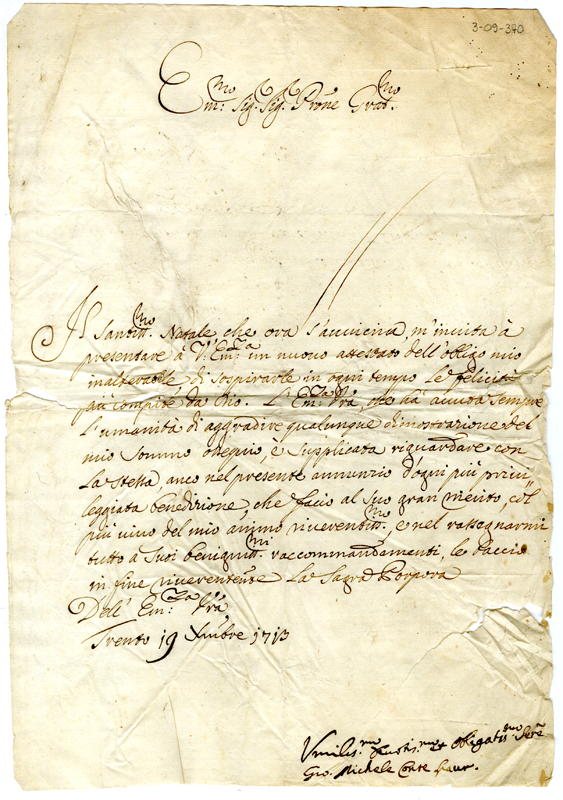 3-09-370
Em:mo Sig: Sig: Prone Grat:mo
Il Santiss:mo Natale che ora s'auuicina, m'inuita à
presentare à V. Em:a un nuouo attestato dell'obligo mio
inalterabile di sospirarle in ogni tempo le felicità
più compite da Dio. L'Em:za Vra, che hà auuta sempre
l'umanità di aggradire qualunque dimostrazione del
mio sommo ossequio, è supplicata riguardare con
la stessa, anco nel presente annunzio d'ogni più priui,,
leggiata benedizione, che facio al Suo gran merito, col
più uiuo del mio animo riuerentiss:mo e nel rassegnarmi
tutto a Suoi benigniss:mi raccommandamenti, le baccio
in fine riuerentemte la Sagra Porpora
Dell' Em:za Vra
Trento 19 Xmbre 1713
Vmilis:mo Deuotis:mo et Obligatis:mo Serre
Gio. Michele Conte